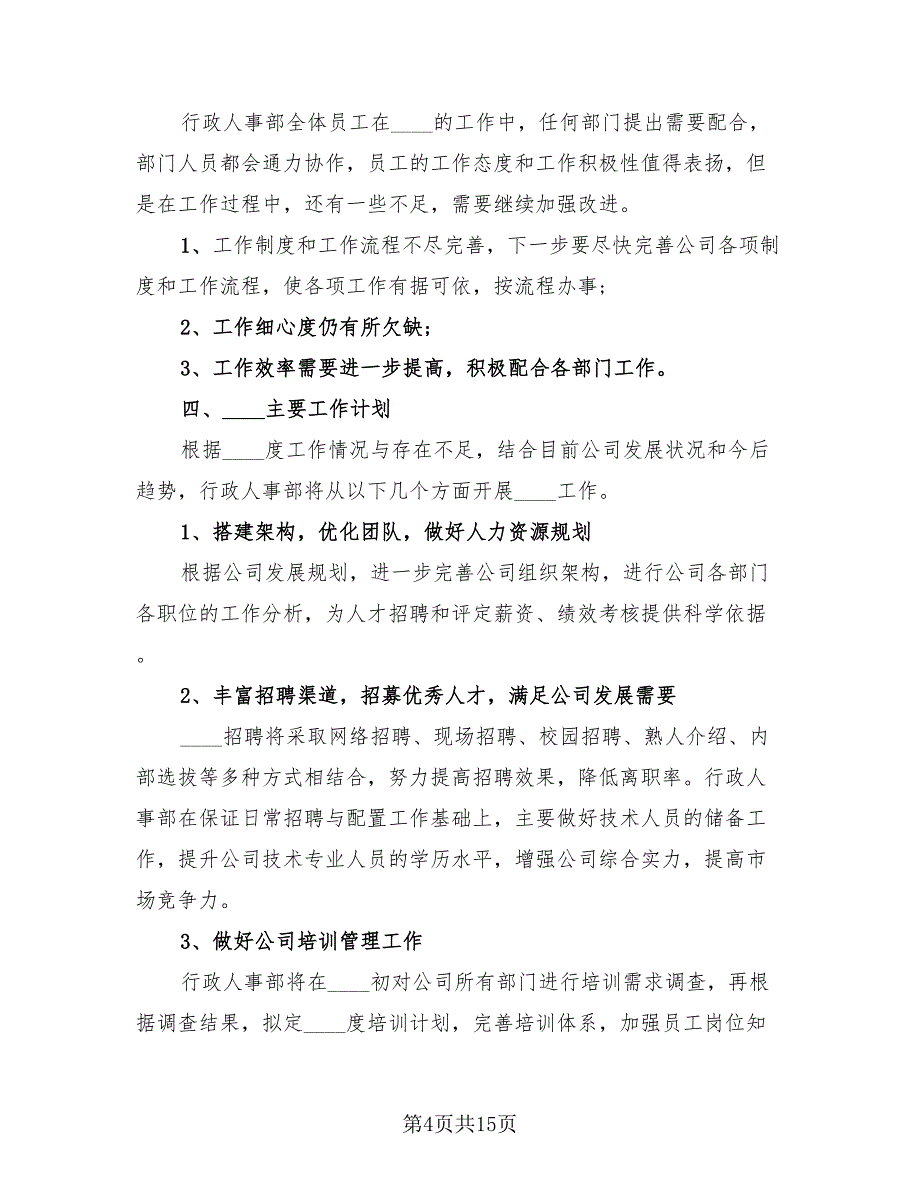 行政人事部全体员工在____的工作中，任何部门提出需要配合，
部门人员都会通力协作，员工的工作态度和工作积极性值得表扬，但
是在工作过程中，还有一些不足，需要继续加强改进。
1、工作制度和工作流程不尽完善，下一步要尽快完善公司各项制
度和工作流程，使各项工作有据可依，按流程办事;
2、工作细心度仍有所欠缺;
3、工作效率需要进一步提高，积极配合各部门工作。
四、____主要工作计划
根据____度工作情况与存在不足，结合目前公司发展状况和今后
趋势，行政人事部将从以下几个方面开展____工作。
1、搭建架构，优化团队，做好人力资源规划
根据公司发展规划，进一步完善公司组织架构，进行公司各部门
各职位的工作分析，为人才招聘和评定薪资、绩效考核提供科学依据
。
2、丰富招聘渠道，招募优秀人才，满足公司发展需要
____招聘将采取网络招聘、现场招聘、校园招聘、熟人介绍、内
部选拔等多种方式相结合，努力提高招聘效果，降低离职率。行政人
事部在保证日常招聘与配置工作基础上，主要做好技术人员的储备工
作，提升公司技术专业人员的学历水平，增强公司综合实力，提高市
场竞争力。
3、做好公司培训管理工作
行政人事部将在____初对公司所有部门进行培训需求调查，再根
据调查结果，拟定____度培训计划，完善培训体系，加强员工岗位知
第4页共15页